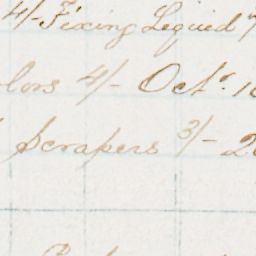 4/- Fixing Lequid
lors 4/- Octr. 10
Scrapers 3/- 2